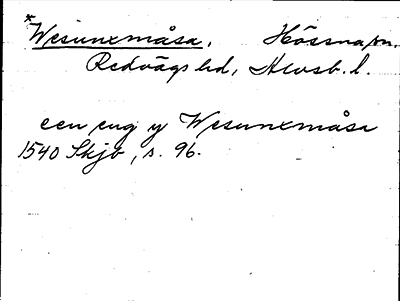 *Wesunxmåsa. Hössna sn.
Redvägs hd, Älvsb. l.
een eng y Wesunxmåsa
1540 Skjb, s. 96.